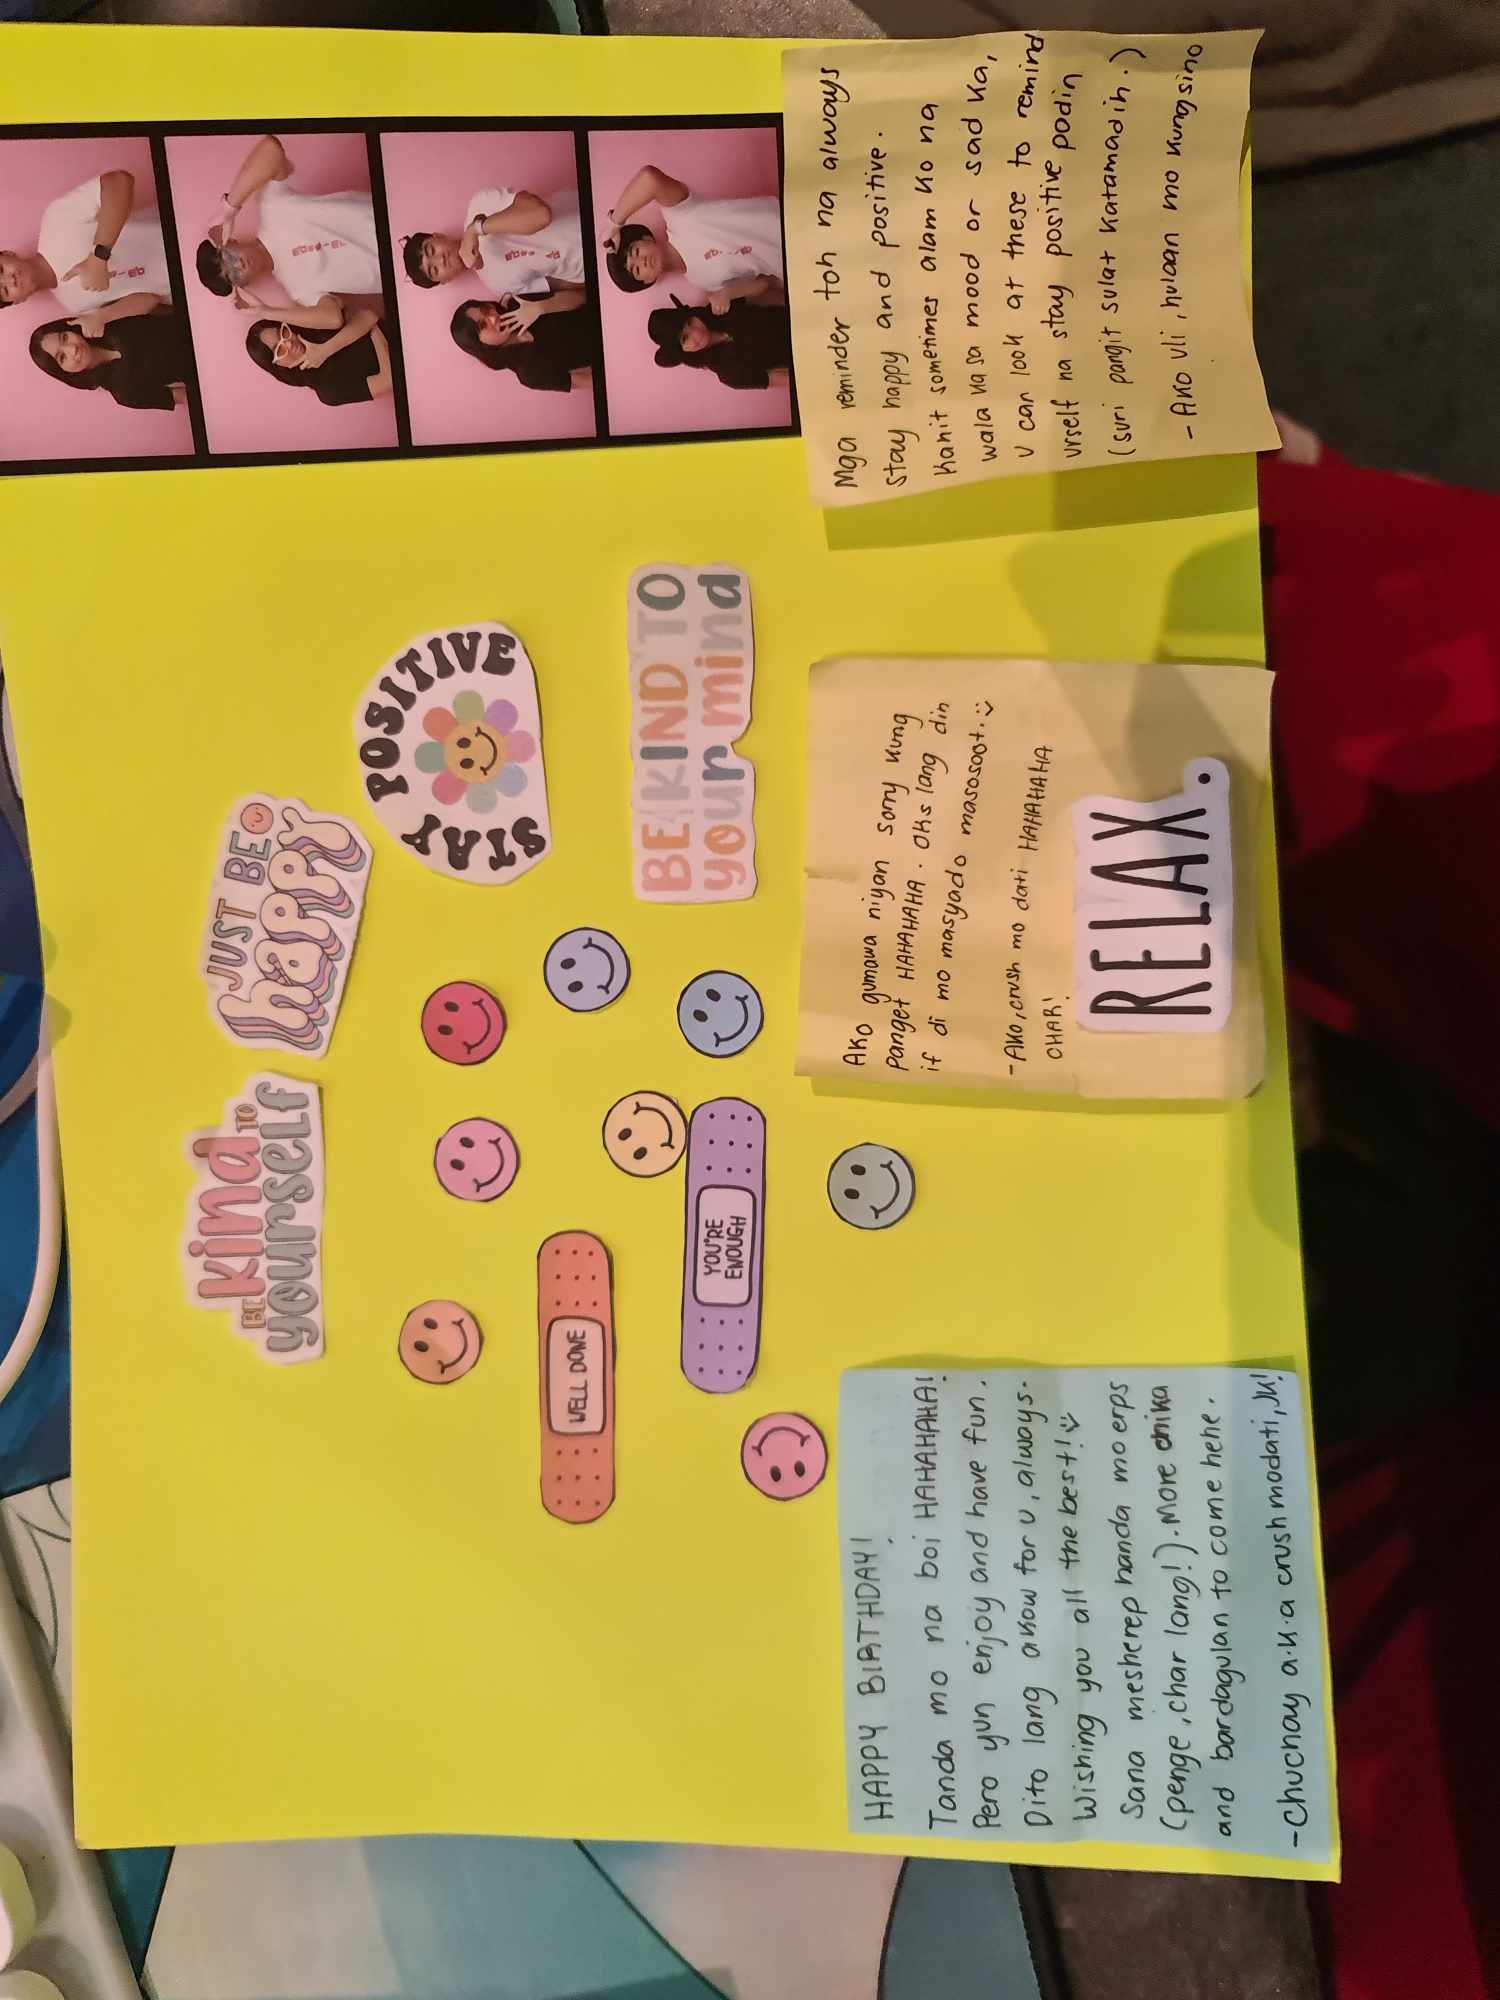 BE kind TO
yourself
JUST BE
happy
STAY POSITIVE
WELL DONE
YOU'RE
ENOUGH
BE KIND TO
your mind
HAPPY BIRTHDAY!
Tanda mo na boi HAHAHAHA!
Pero yun enjoy and have fun.
Dito lang akow for u, always.
Wishing you all the best!
Sana mesherep handa mo erps
(penge, char lang!). More chika
and bardagulan to come hehe.
- Chuchay a.k.a crush mo dati, JK!
Ako gumawa niyan sorry kung
panget HAHAHAHA. Oks lang din
if di mo masyado masosoot. :)
- Ako, crush mo dati HAHAHAHA
CHAR!
RELAX.
Mga reminder toh na always
stay happy and positive.
Kahit sometimes alam ko na
wala ka sa mood or sad ka,
U can look at these to remind
urself na stay positive padin
(suri pangit sulat katamadin.)
- Ako uli, hulaan mo kung sino